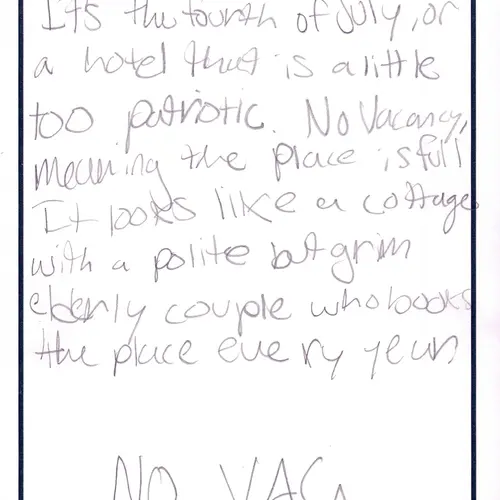 Its the fourth of July, or
a hotel that is a little
too patriotic. No Vacancy,
meaning the place is full
It looks like a cottage
with a polite but grim
elderly couple who books
the place every year
NO VAC